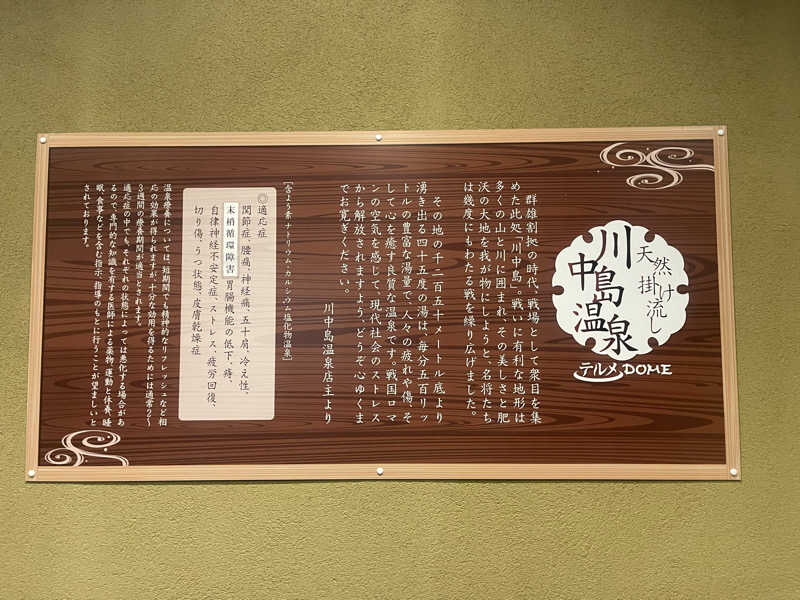 天然
掛け
流し
川
中島
温泉
テルメDOME
群雄割拠の時代、戦場として衆目を集
めた此処「川中島」。戦いに有利な地形は
多くの山と川に囲まれ、その美しさと肥
沃の大地を我が物にしようと、名将たち
は幾度にもわたる戦を繰り広げました。
その地の千二百五十メートル底より
湧き出る四十五度の湯は、毎分五百リッ
トルの豊富な湯量で、人々の疲れや傷、そ
して心を癒す良質な温泉です。戦国ロマ
ンの空気を感じて、現代社会のストレス
から解放されますよう、どうぞ心ゆくま
でお寛ぎください。
川中島温泉店主より
[含よう素 ナトリウム・カルシウム塩化物温泉]
◎適応症
関節症、腰痛、神経痛、五十肩、冷え性、
末梢循環障害、胃腸機能の低下、痔、
自律神経不安定症、ストレス、疲労回復、
切り傷、うつ状態、皮膚乾燥症
温泉療養については、短期間でも精神的なリフレッシュなど相
応の効果が得られますが、十分な効用を得るためには通常2〜
3週間の療養期間が適当とされます。
適応症の中でも、それぞれの状態によっては悪化する場合があ
るので、専門的な知識を有する医師による薬物、運動と休養、睡
眠、食事などを含む指示、指導のもとに行うことが望ましいと
されております。